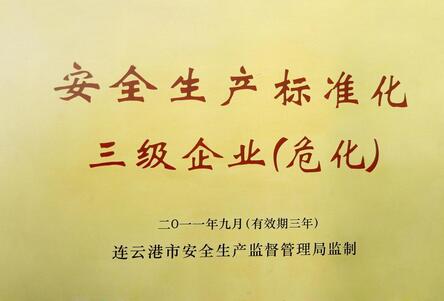 安全生产标准化
三级企业(危化)
二〇一一年九月(有效期三年)
连云港市安全生产监督管理局监制